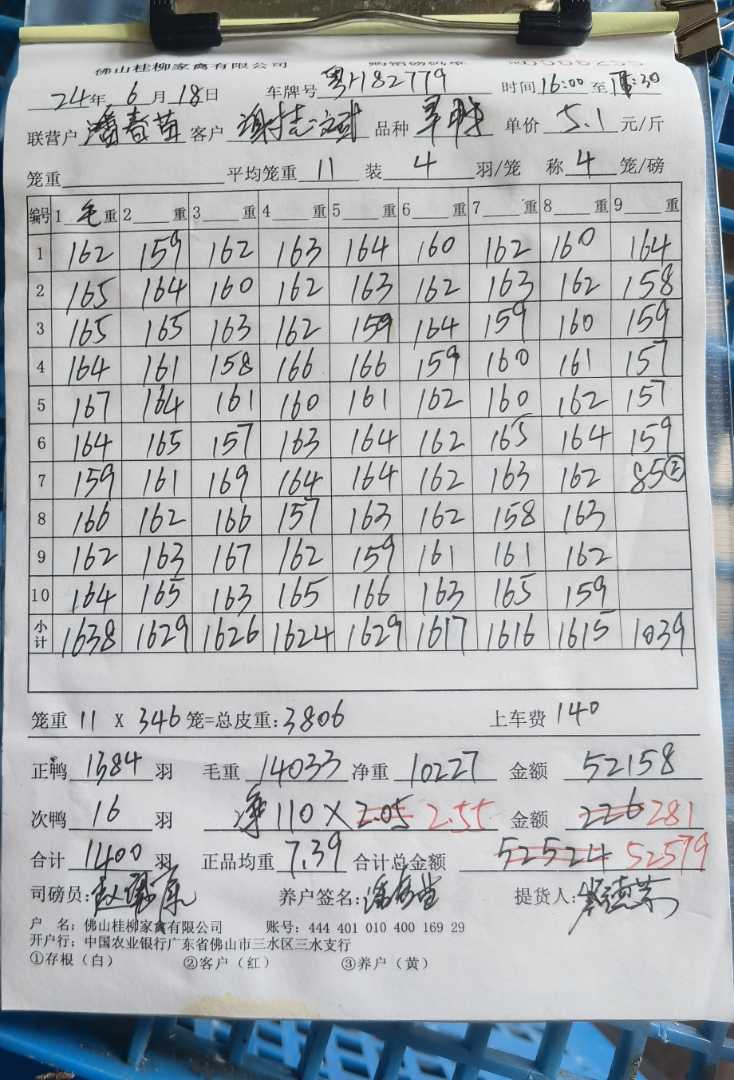 佛山桂柳家禽有限公司
24年 6月 18日 车牌号 粤H82779 时间 16:00 至 :30
联营户 潘春苗 客户 品种 单价 5.1 元/斤
笼重 平均笼重 11 装 4 羽/笼 称 4 笼/磅
编号 1 毛 重 2 重 3 重 4 重 5 重 6 重 7 重 8 重 9 重
1 162 159 162 163 164 160 162 160 164
2 165 164 160 162 163 162 163 162 158
3 165 165 163 162 159 164 159 160 159
4 164 161 158 166 166 159 160 161 157
5 167 164 161 160 161 162 160 162 157
6 164 165 157 163 164 162 165 164 159
7 159 161 169 164 164 162 163 162 85②
8 166 162 166 157 163 162 158 163
9 162 163 167 162 159 161 161 162
10 164 165 163 165 166 163 165 159
小计 1638 1629 1626 1624 1629 1617 1616 1615 1039
笼重 11 X 346 笼=总皮重: 3806 上车费 140
正鸭 1384 羽 毛重 14033 净重 10227 金额 52158
次鸭 16 羽 净110×2.05 2.55 金额 226 281
合计 1400 羽 正品均重 7.39 合计总金额 52524 52579
司磅员: 养户签名: 提货人:
户 名: 佛山桂柳家禽有限公司 账号: 444 401 010 400 169 29
开户行: 中国农业银行广东省佛山市三水区三水支行
①存根（白） ②客户（红） ③养户（黄）